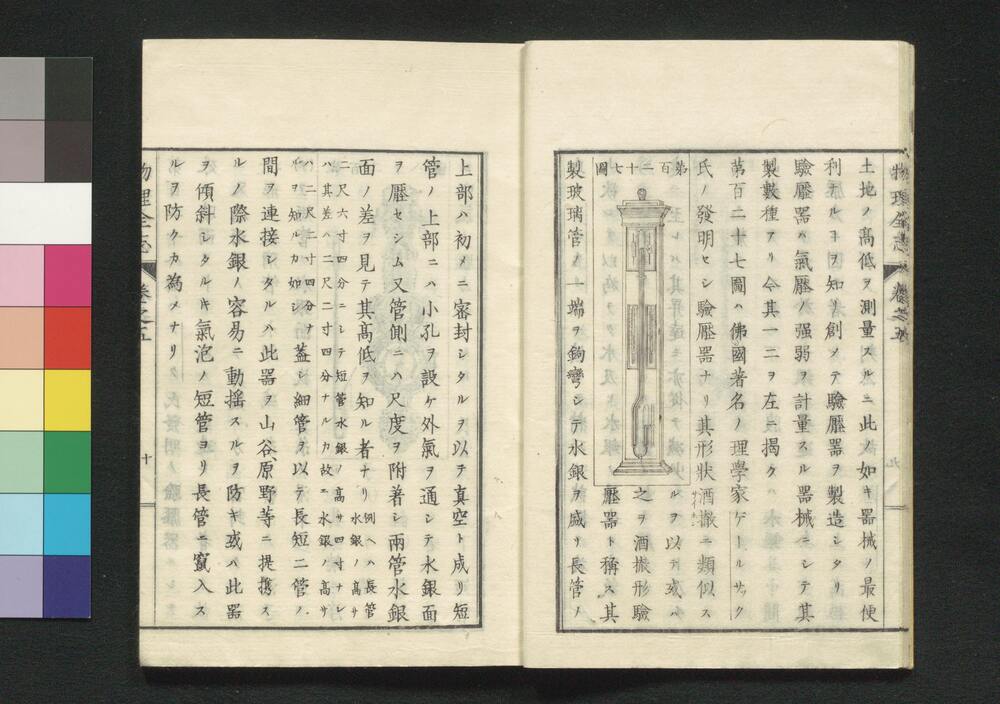 物理全志 卷之五
土地ノ髙低ヲ測量スルニ此ノ如キ器械ノ最便
利ナルヿヲ知リ創メテ驗壓器ヲ製造シタリ
驗壓器ハ氣壓ノ强弱ヲ計量スル器械ニシテ其
製數種アリ今其一二ヲ左ニ掲ク
第百二十七圖ハ佛國著名ノ理學家ゲールサック
氏ノ發明セシ驗壓器ナリ其形狀酒撒ニ類似ス
第百二十七圖
ルヲ以テ或ハ
之ヲ酒撒形驗
壓器ト稱ス其
製玻璃管ノ一端ヲ鉤彎シテ水銀ヲ盛リ長管ノ
上部ハ初メニ密封シタルヲ以テ真空ト成リ短
管ノ上部ニハ小孔ヲ設ケ外氣ヲ通シテ水銀面
ヲ壓セシム又管側ニハ尺度ヲ附著シ兩管水銀
面ノ差ヲ見テ其髙低ヲ知ル者ナリ
例ヘハ長管
水銀ノ髙サ
二尺六寸四分ニシテ短管水銀ノ髙サ四寸ナレ
ハ其差ハ二尺二寸四分ナルカ故ニ水銀ノ髙サ
ハ二尺二寸四分ナ
ルヲ知ルカ如シ
蓋シ細管ヲ以テ長短二管ノ
間ヲ連接シタルハ此器ヲ山谷原野等ニ提携ス
ルノ際水銀ノ容易ニ動搖スルヲ防キ或ハ此器
ヲ傾斜シタルキ氣泡ノ短管ヨリ長管ニ竄入ス
ルヲ防クカ為メナリ
物理全志 卷之五 十